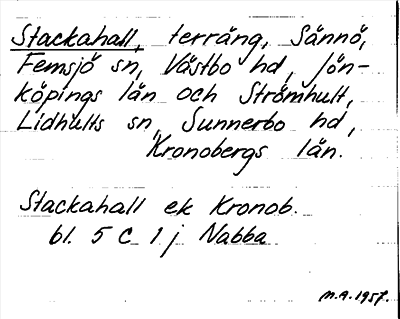 Stackahall, terräng, Sännö,
Femsjö sn, Västbo hd, Jön-
köpings län och Strömhult,
Lidhults sn, Sunnerbo hd,
Kronobergs län.
Stackahall ek Kronob.
bl. 5 C 1 j Nabba
M.A. 1957.